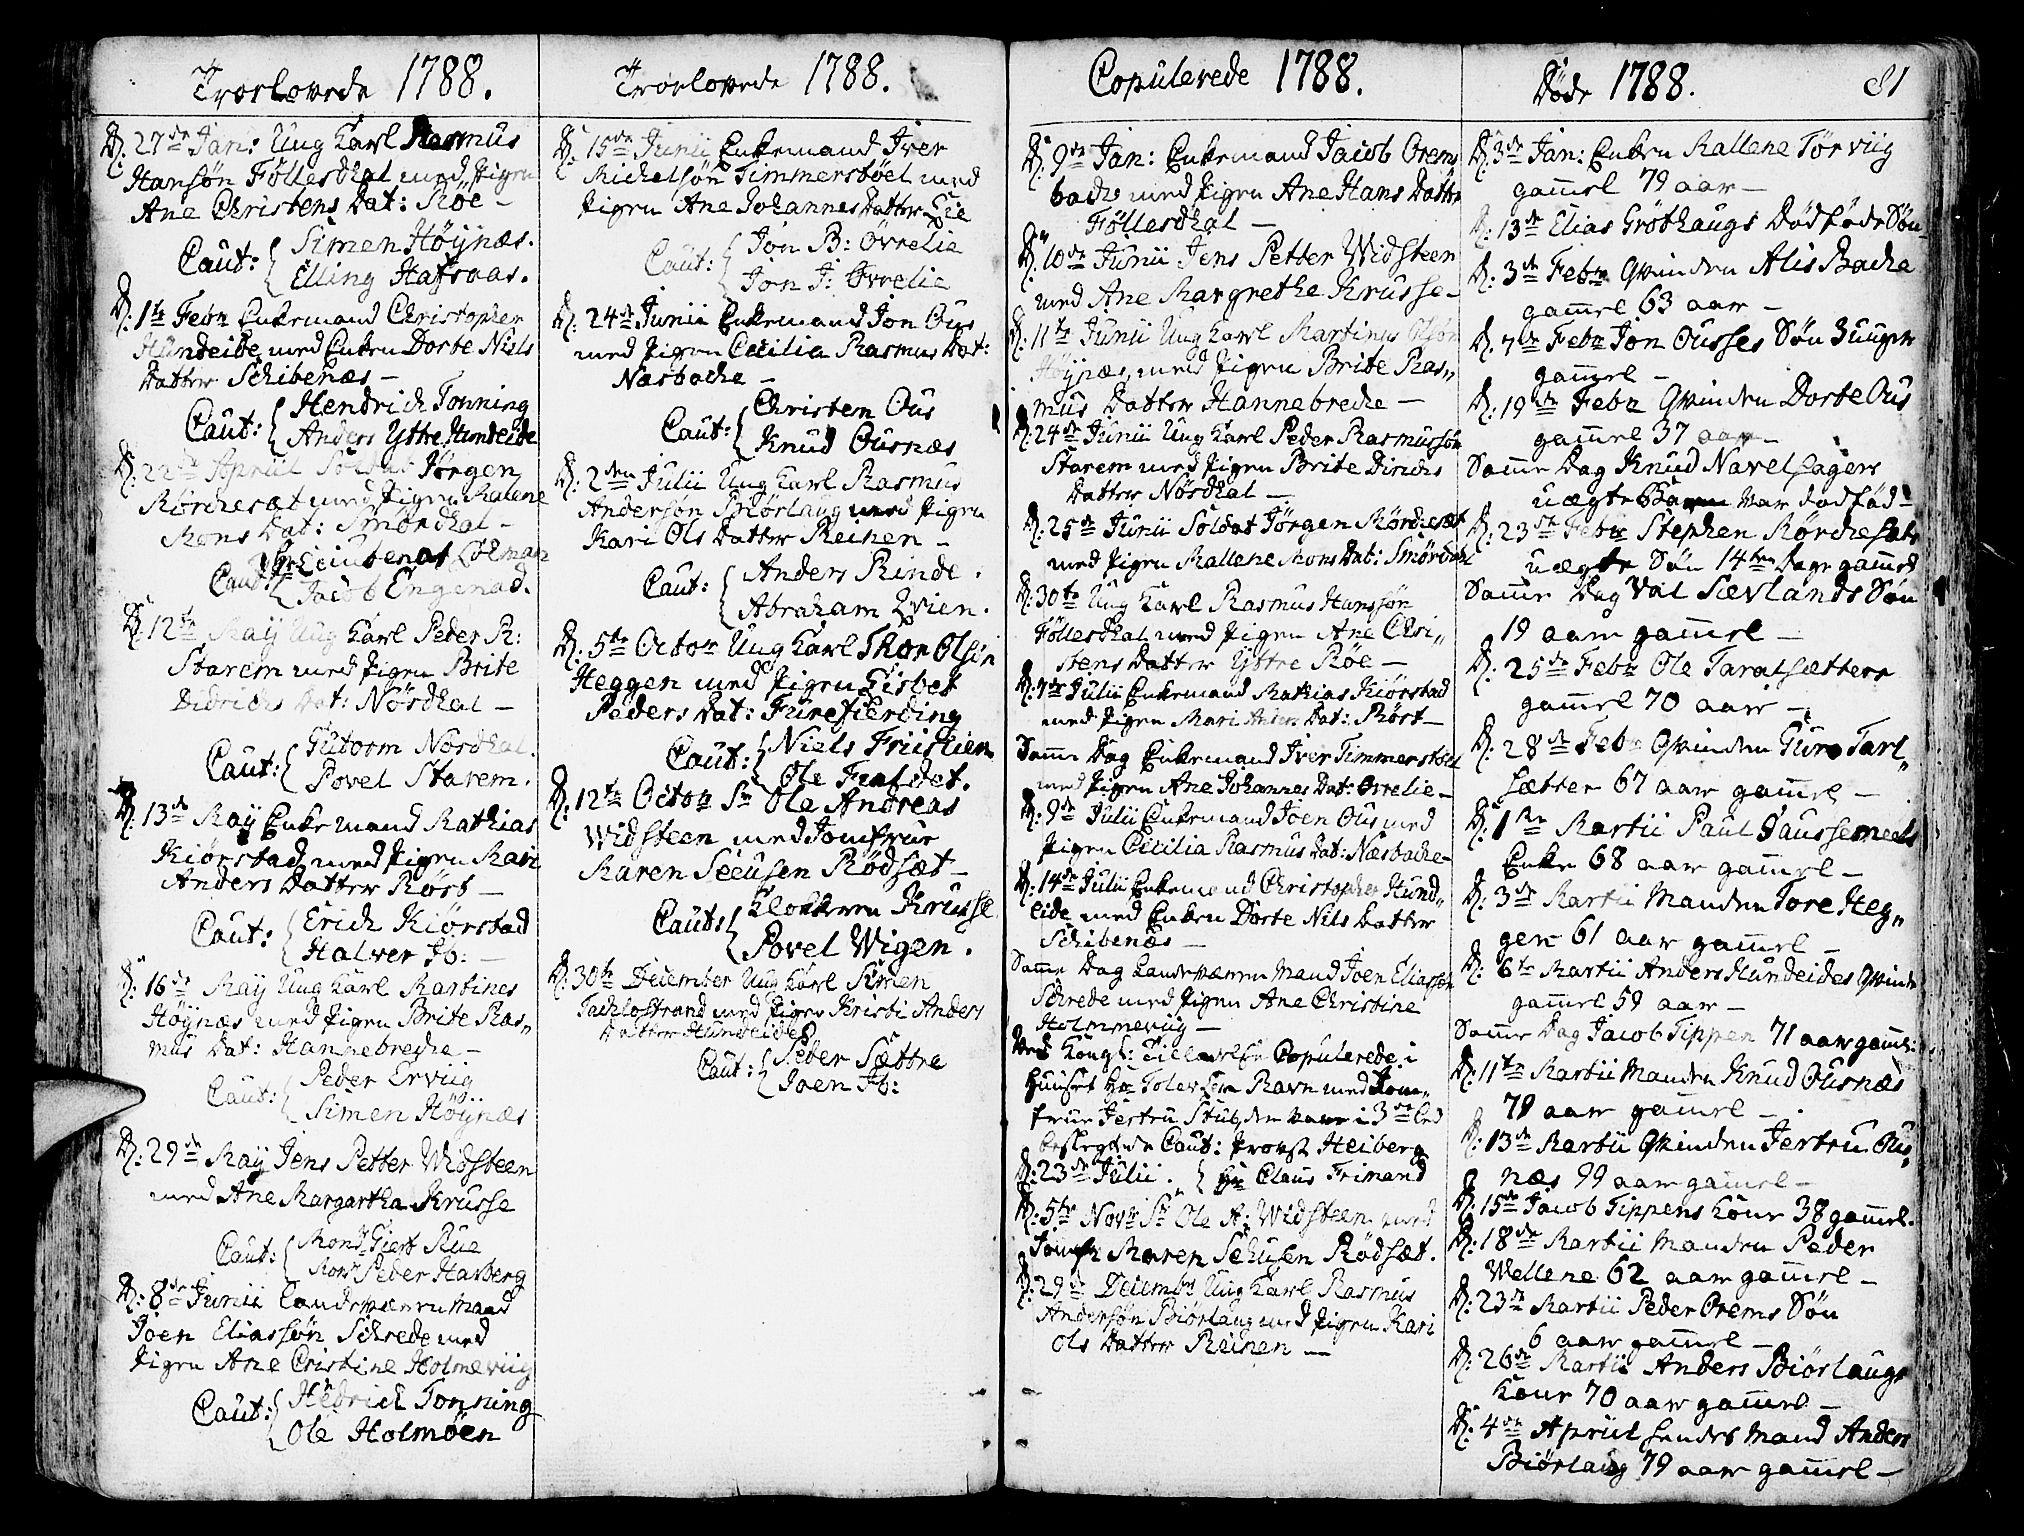 Troelovede 1788.
D: 27de Jan: Ung Karl Rasmus
Hansøn Föllesdhal med Pigen
Ane Christens Dat: Röe -
Caut: Simen Höÿnæs.
Elling Hafsaas.
D: 1te Febr Enkemand Christopher
Hundeide med Enken Dorte Niels
Datter Schibenæs -
Caut: Hendrich Tonning
Anders Yttre Hundeide
D: 22de Apriil Soldat Jörgen
Rörchesæt med Pigen Malene
Mons Dat: Smördhal -
Caut: Leiutenat Colman
Jacob Engenad.
D: 12te Maÿ Ung Karl Peder R:
Starem med Pigen Brite
Didrichs Dat: Nördhal -
Caut: Gutorm Nordhal.
Povel Starem.
D: 13de Maÿ Enkemand Mathias
Kiörstad med Pigen Mari
Anders Datter Röst -
Caut: Erich Kiörstad
Halver Ib: -
D: 16de Maÿ Ung Karl Martines
Höÿnæs med Pigen Brite Ras„
mus Dat: Hannebreche -
Caut: Peder Erviig
Simen Höÿnæs
D: 29de Maÿ Jens Petter Widsteen
med Ane Margartha Krusse
Caut: Monsr Giert Rue
Monsr Peder Harberg
D: 8de Junii Landeværn Mand
Joen Eliassøn Schrede med
Pigen Ane Cristine Holmeviig
Caut: Hedrich Tonning
Ole Holmöen
Troelovede 1788.
D: 15de Junii Enkemand Iver
Michelsøn Timmerstöel med
Pigen Ane Johannes Datter Lie
Caut: Jon B: Övrelie
Jon J: Övrelie
D: 24de Junii Enkemand Jon Ous
med Pigen Cecilia Rasmus Dat:
Næsbache -
Caut: Christen Ous
Knud Ousnæs
D: 2den Julii Ung Karl Rasmus
Andersøn Biörlaug med Pigen
Kari Ols Datter Reinen -
Caut: Anders Rinde.
Abraham Qvien.
D: 5te Octor Ung Karl Thor Olsøn
Heggen med Pigen Lisbet
Peders Dat: Furefierding
Caut: Niels Friislien
Ole Fralsdet.
D: 12te Octor Sr Ole Andreas
Widsteen med Jomfrue
Maren Seeusen Rödsæt -
Caut: Klokkeren Krusse
Povel Wigen.
D: 30te December Ung Karl Simen
Tachlostrand med Pigen Kristi Anders
Datter Hundeide
Caut: Peder Sættre
Joen Ib:
Copulerede 1788.
D: 9de Jan: Enkemand Jacob Orems
bache med Pigen Ane Hans Datter
Föllesdhal -
D: 10de Junii Jens Petter Widsteen
med Ane Margrethe Krusse -
D: 11te Junii Ung Karl Martinus Olsøn
Höÿnæs, med Pigen Brite Ras„
mus Datter Hannebreche -
D: 24de Junii Ung Karl Peder Rasmussøn
Starem med Pigen Brite Dirichs
Datter Nördhal -
D: 25de Junii Soldat Jörgen Rörchesæt
med Pigen Mallene Mons Dat: Smördhal
D: 30te Ung Karl Rasmus Hanssøn
Föllesdhal med Pigen Ane Chri„
stens Datter Yttre Röe -
D: 7de Julii Enkemand Mathias Kiörstad
med Pigen Mari Anders Dat: Röst -
Samme Dag Enkemand Iver Timmerstöel
med Pigen Ane Johannes Dat: Övrelie -
D: 9de Julii Enkemand Joen Ous med
Pigen Cecilia Rasmus Dat: Næsbache -
D: 14de Julii Enkemand Christopher Hund„
eide med Enken Dorte Nils Datter
Schibenæs -
Samme Dag Landeværn Mand Joen Eliassøn
Schrede med Pigen Ane Christine
Holmmeviig -
Ved Kongl: Tilladelse Copulerede i
Huuset Hr Ravn med Jom„
frue Jertru Stub, den var i 3de Led
beslegtede Caut: Provst Heiberg
D: 23de Julii. Hr Claus Frimand
D: 5te Novr Sr Ole A: Widsteen med
Jomfr Maren Sehusen Rödsæt.
D: 29de Decembr Ung Karl Rasmus
Andersøn Biörlaug med Pigen Kari
Ols Datter Reinen -
Døde 1788. 81
D: 3de Jan: Enken Mallene Törviig
gammel 79 aar -
D: 13de Elias Gröthaugs Dödföde Søn -
D: 3de Febr Qvinden Alis Bache
gammel 63 aar -
D: 7de Febr Jon Ousses Søn 3 uuger
gammel -
D: 19de Febr Qvinden Dorte Ous
gammel 37 aar -
Samme Dag Knud Navelsagers
uægte Barn var dødfød -
D: 23de Febr Stephen Rörchesæters
uægte Søn 14ten Dage gammel
Samme Dag Val Sævlands Søn
19 aar gammel -
D: 25de Febr Ole Taralsætter
gammel 70 aar -
D: 28de Febr Qvinden Guro Tarl„
sætter 67 aar gammel -
D: 1ste Martii Paul Paussemeels
Enke 68 aar gammel -
D: 3de Martii Manden Tore Heg„
gen 61 aar gammel -
D: 6te Martii Anders Hundeides Qvinde
gammel 59 aar -
Samme Dag Jacob Tippen 71 aar gamml:
D: 11te Martii Manden Knud Ousnæs
79 aar gammel -
D: 13de Martii Qvinden Jertru Ous„
næs 99 aar gammel -
D: 15de Jacob Tippens Kone 38 gammel.
D: 18de Martii Manden Peder
Wellene 62 aar gammel -
D: 23de Martii Peder Orems Søn
6 aar gammel -
D: 26de Martii Anders Biörlaugs
Kone 70 aar gammel -
D: 4de Apriil samme Mand Anders
Biörlaug 79 aar gammel -